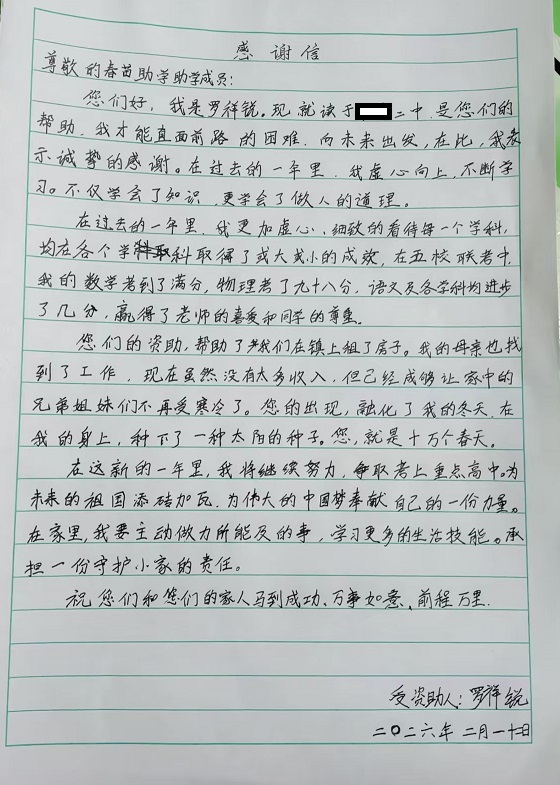 感谢信
尊敬的春苗助学助学成员：
您们好，我是罗祥锐。现就读于二中，是您们的
帮助，我才能直面前路的困难，向未来出发，在比，我表
示诚挚的感谢。在过去的一年里，我虚心向上，不断学
习。不仅学会了知识，更学会了做人的道理。
在过去的一年里，我更加虚心，细致的看待每一个学科，
均在各个学科取得了或大或小的成效，在五校联考中，
我的数学考到了满分，物理考了九十八分，语文及各学科均进步
了几分，赢得了老师的喜爱和同学的尊重。
您们的资助，帮助了我们在镇上租了房子。我的母亲也找
到了工作，现在虽然没有太多收入，但已经成够让家中的
兄弟姐妹们不再受寒冷了。您的出现，融化了我的冬天，在
我的身上，种下了一种太阳的种子。您，就是十万个春天。
在这新的一年里，我将继续努力，争取考上重点高中。为
未来的祖国添砖加瓦，为伟大的中国梦奉献自己的一份力量。
在家里，我要主动做力所能及的事，学习更多的生活技能。承
担一份守护小家的责任。
祝您们和您们的家人马到成功、万事如意、前程万里.
受资助人：罗祥锐
二〇二六年二月一十二日